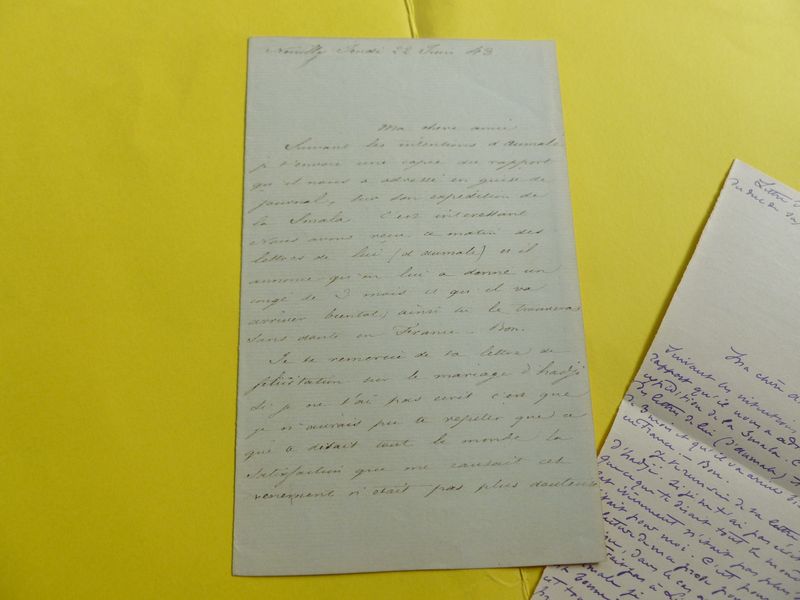 Neuilly Jeudi 22 Juin 43
Ma chere amie
Suivant les intentions d'aumale
je t'envoie une copie du rapport
qu'il nous a adressé en guise de
journal, sur son expédition de
la Smala. C'est interessant
Nous avons reçu ce matin des
lettres de lui (d'aumale) et il
annonce qu'on lui a donné un
congé de 3 mois et qu'il va
arriver bientot, ainsi tu le trouveras
sans doute en France. Bon.
Je te remercie de ta lettre de
félicitation sur le mariage d'hadji
Si je ne t'ai pas écrit c'est que
je n'aurais pu te repeter que ce
que te disait tout le monde la
satisfaction que me causait cet
evenement n'était pas plus douteuse
Lettre
du duc de
Ma chère a
Suivant les intentions
rapport qu'il nous a ad
expédition de la Smala
des lettres de lui (d'aumale)
de 3 mois et qu'il va arriver b
en France. Bon.
Je te remercie de ta lettre
d'hadji. Si je ne t'ai pas écrit
que ce que te disait tout le monde
cet évènement n'était pas plus
pour moi. C'est pour